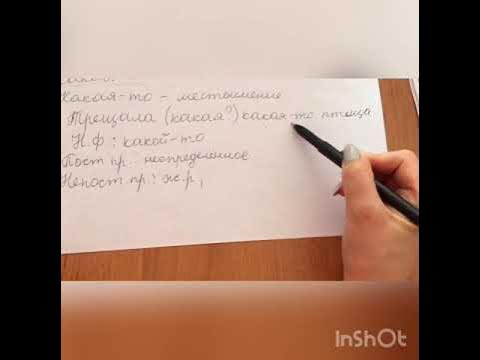 Какая-то – местоимение
Трещала (какая?) какая-то птица
Н.ф: какой-то
Пост.пр.: неопределенное
Непост.пр.: ж.р,
InShOt